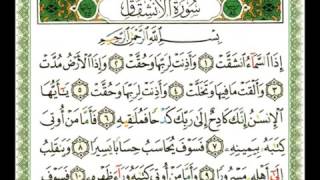 سُورَةُ الِانشِقَاقِ
بِسْمِ اللَّهِ الرَّحْمَٰنِ الرَّحِيمِ
إِذَا السَّمَاءُ انشَقَّتْ ١ وَأَذِنَتْ لِرَبِّهَا وَحُقَّتْ ٢ وَإِذَا الْأَرْضُ مُدَّتْ
٣ وَأَلْقَتْ مَا فِيهَا وَتَخَلَّتْ ٤ وَأَذِنَتْ لِرَبِّهَا وَحُقَّتْ ٥ يَا أَيُّهَا
الْإِنسَانُ إِنَّكَ كَادِحٌ إِلَىٰ رَبِّكَ كَدْحًا فَمُلَاقِيهِ ٦ فَأَمَّا مَنْ أُوتِيَ
كِتَابَهُ بِيَمِينِهِ ٧ فَسَوْفَ يُحَاسَبُ حِسَابًا يَسِيرًا ٨ وَيَنقَلِبُ
إِلَىٰ أَهْلِهِ مَسْرُورًا ٩ وَأَمَّا مَنْ أُوتِيَ كِتَابَهُ وَرَاءَ ظَهْرِهِ ١٠ فَسَوْفَ